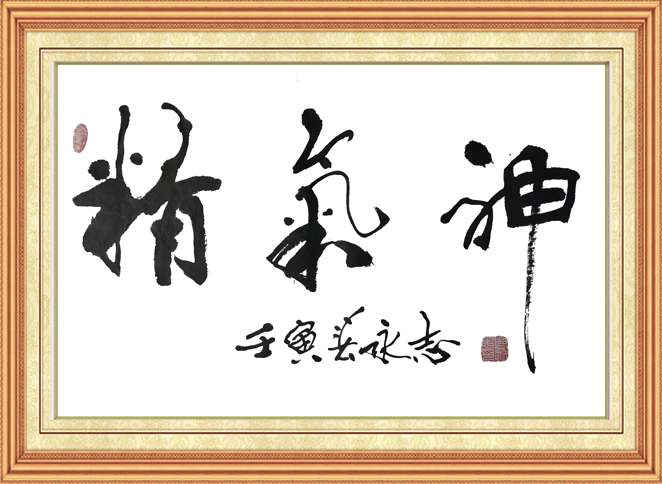 精氣神
壬寅春永志